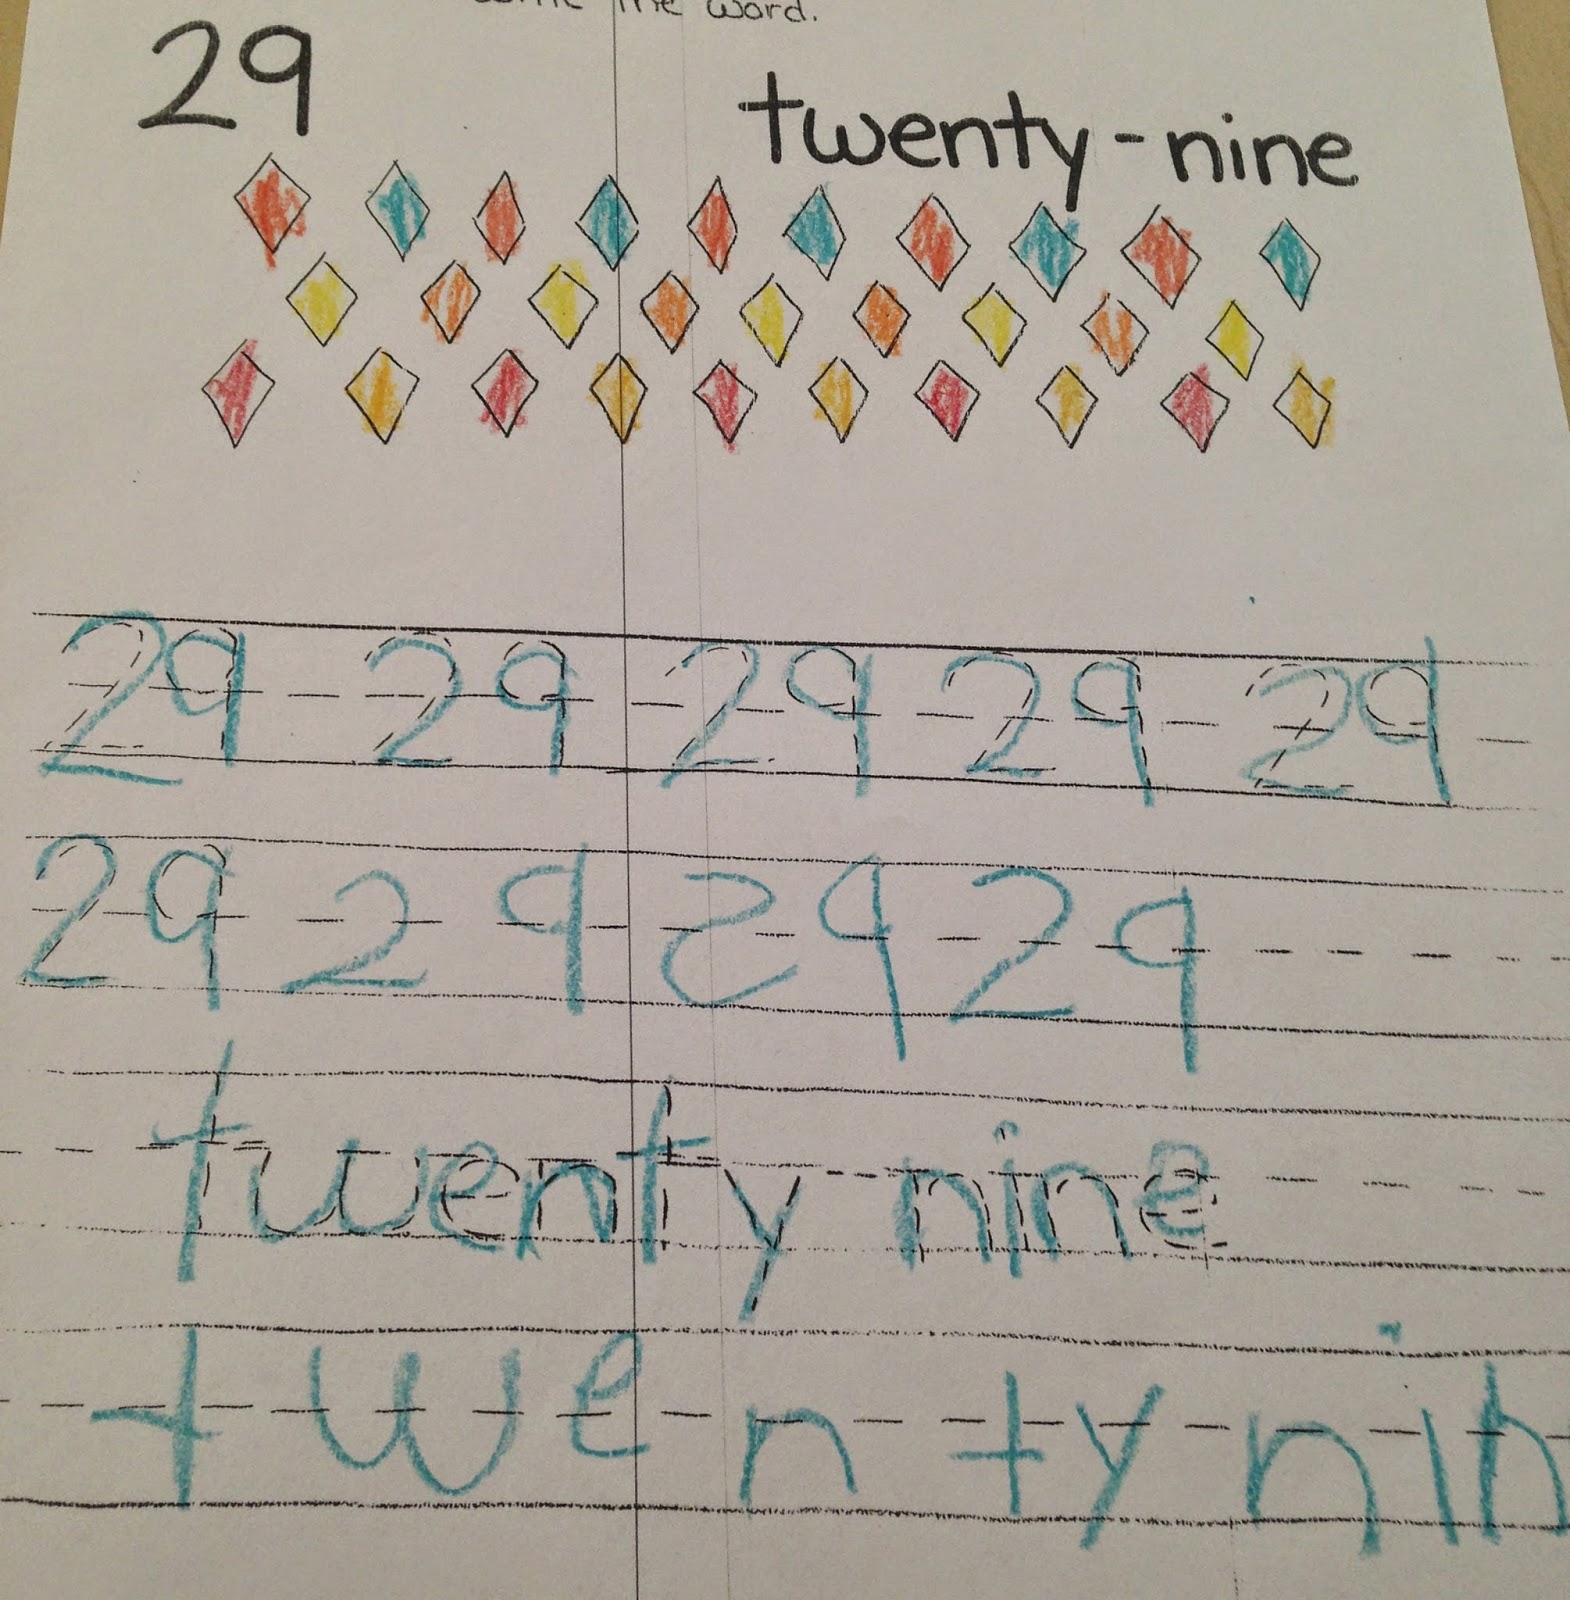 the word.
29
twenty-nine
29 29 29 29 29
29 29 29 29
twenty-nine
twenty nin